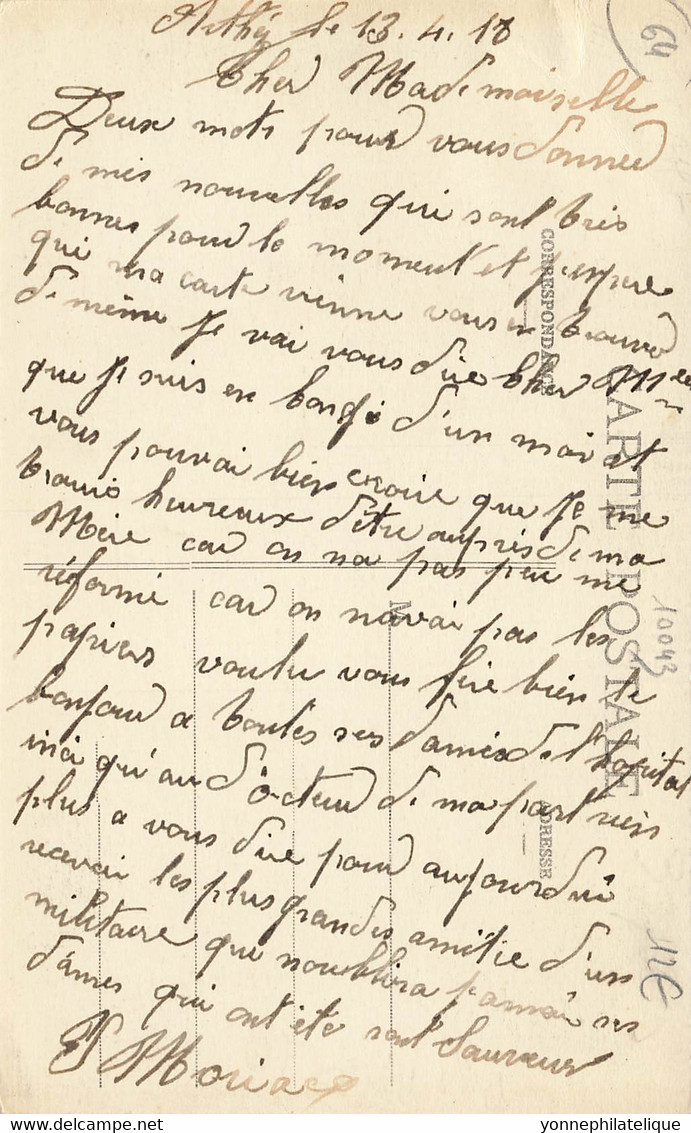 le 13.4.18
64
Cher Mademoiselle
Deux mots pour vous donner
de mes nouvelles qui sont très
bonnes pour le moment et j'espère
que ma carte vienne vous en trouver
de même Je vai vous dire Cher Mlle
que Je suis en congé d'un moi et
vous pouvai bien croire que Je me
trouve heureux d'être auprès de ma
Mère car on na pas peu me
réformé car on navai pas les
papiers voulu vous fere bien le
bonjour a toutes ses dames de l'hopital
insi qu'au docteur de ma part rien
plus a vous dire pour aujourdui
recevai les plus grandes amitie d'un
militaire que noublira jamais ses
dames qui ont été sont Sauveur
CORRESPONDANCE
CARTE POSTALE
M
ADRESSE
10043
12€
yonnephilatelique